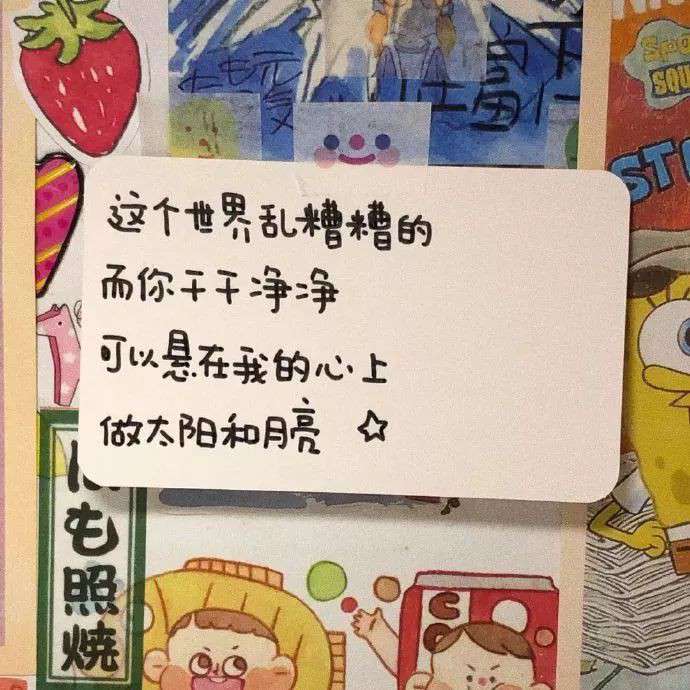 这个世界乱糟糟的
而你干干净净
可以悬在我的心上
做太阳和月亮 ☆
も照焼